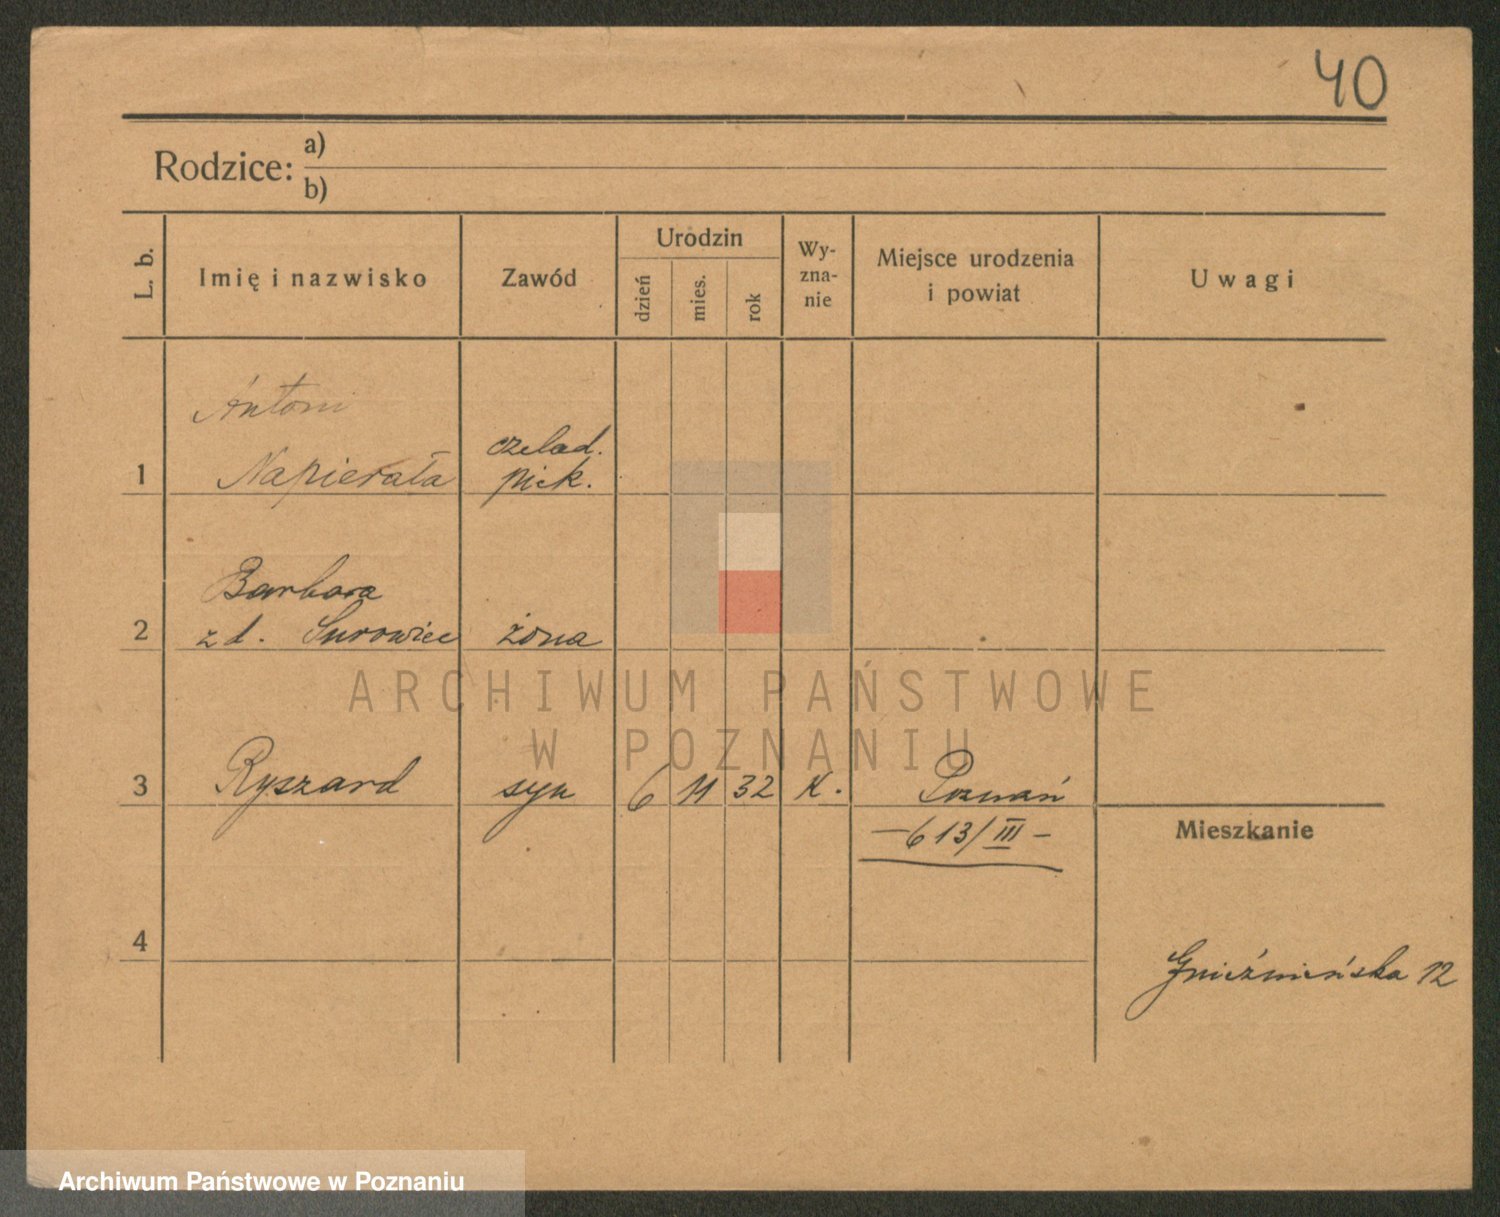 40
Rodzice: a)
b)
L. b. Imię i nazwisko Zawód Urodzin dzień mies. rok Wy-zna-nie Miejsce urodzenia i powiat Uwagi
Antoni
czelad.
1 Napierała piek.
Barbara
2 z d. Surowiec żona
ARCHIWUM PAŃSTWOWE
W POZNANIU
3 Ryszard syn 6 11 32 K. Poznań
—613/III—
Mieszkanie
4
Gnieźnieńska 12
Archiwum Państwowe w Poznaniu